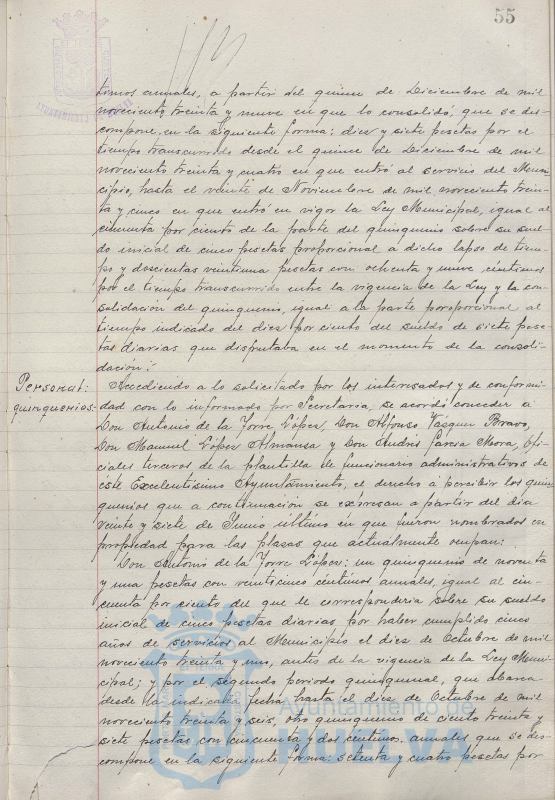 55
timos anuales, a partir del quince de Diciembre de mil
novecientos treinta y nueve en que lo consolidó, que se des-
compone en la siguiente forma: diez y siete pesetas por el
tiempo transcurrido desde el quince de Diciembre de mil
novecientos treinta y cuatro en que entró al servicio del Muni-
cipio, hasta el veinte de Noviembre de mil novecientos trein-
ta y cinco en que entró en vigor la Ley Municipal, igual al
cincuenta por ciento de la parte del quinquenio sobre su suel-
do inicial de cinco pesetas proporcional a dicho lapso de tiem-
po y doscientas veintiuna pesetas con ochenta y nueve céntimos
por el tiempo transcurrido entre la vigencia de la Ley y la con-
solidación del quinquenio, igual a la parte proporcional al
tiempo indicado del diez por ciento del sueldo de siete pese-
tas diarias que disfrutaba en el momento de la consoli-
dación.
Personal:
quinquenios.
Accediendo a lo solicitado por los interesados y de conformi-
dad con lo informado por Secretaría, se acordó conceder a
Don Antonio de la Torre López, Don Alfonso Vásquez Bravo,
Don Manuel López Almansa y Don Andrés García Mora, Ofi-
ciales terceros de la plantilla de funcionarios administrativos de
este Excelentísimo Ayuntamiento, el derecho a percibir los quin-
quenios que a continuación se expresan a partir del día
veinte y siete de Junio último en que fueron nombrados en
propiedad para las plazas que actualmente ocupan:
Don Antonio de la Torre López: un quinquenio de noventa
y una pesetas con veinticinco céntimos anuales, igual al cin-
cuenta por ciento del que le correspondería sobre su sueldo
inicial de cinco pesetas diarias por haber cumplido cinco
años de servicios al Municipio el diez de Octubre de mil
novecientos treinta y uno, antes de la vigencia de la Ley Muni-
cipal; y por el segundo periodo quinquenal, que abarca
desde la indicada fecha hasta el diez de Octubre de mil
novecientos treinta y seis, otro quinquenio de ciento treinta y
siete pesetas con cincuenta y dos céntimos anuales que se des-
compone en la siguiente forma: setenta y cuatro pesetas por
Ayuntamiento de
HUELVA